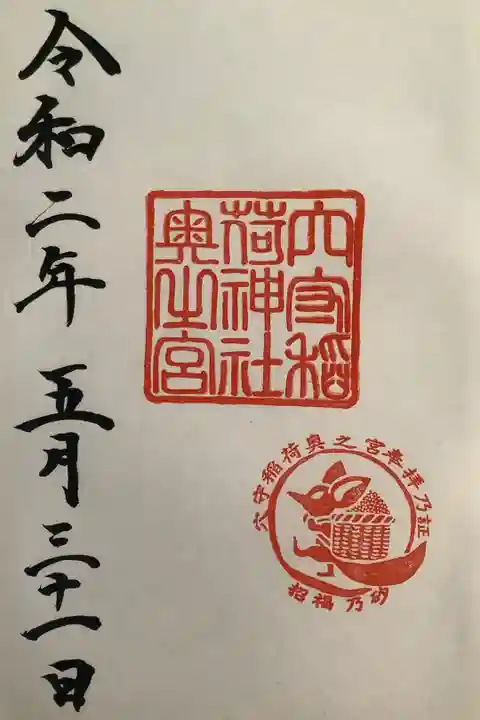 令和二年 五月三十一日
穴守稲
荷神社
奥之宮
穴守稲荷奥之宮奉拝乃証
招福乃砂